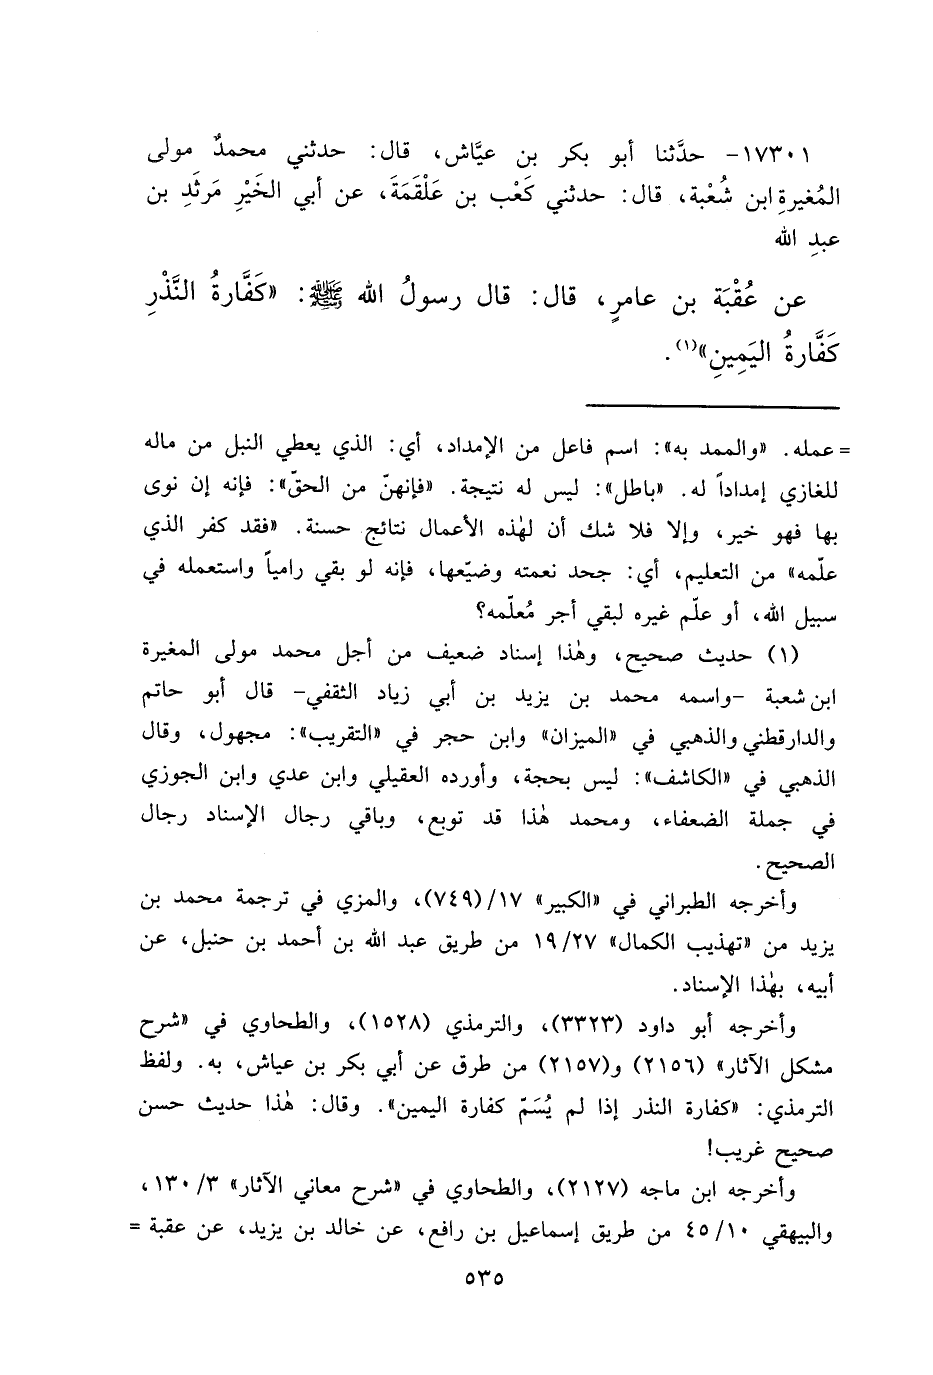 ١٧٣٠١- حدَّثنا أبو بكر بن عيَّاش، قال: حدثني محمدٌ مولى
المُغيرةِ ابن شُعْبة، قال: حدثني كَعْب بن عَلْقَمَةَ، عن أبي الخَيْرِ مَرثَدِ بن
عبدِ الله
عن عُقْبَة بن عامرٍ، قال: قال رسولُ الله ﷺ: «كَفَّارةُ النَّذْرِ
كَفَّارةُ اليَمِينِ»(١).
= عمله. «والممد به»: اسم فاعل من الإمداد، أي: الذي يعطي النبل من ماله
للغازي إمداداً له. «باطل»: ليس له نتيجة. «فإنهنّ من الحقّ»: فإنه إن نوى
بها فهو خير، وإلا فلا شك أن لهٰذه الأعمال نتائج حسنة. «فقد كفر الذي
علّمه» من التعليم، أي: جحد نعمته وضيّعها، فإنه لو بقي رامياً واستعمله في
سبيل الله، أو علّم غيره لبقي أجر مُعلّمه؟
(١) حديث صحيح، وهٰذا إسناد ضعيف من أجل محمد مولى المغيرة
ابن شعبة -واسمه محمد بن يزيد بن أبي زياد الثقفي- قال أبو حاتم
والدارقطني والذهبي في «الميزان» وابن حجر في «التقريب»: مجهول، وقال
الذهبي في «الكاشف»: ليس بحجة، وأورده العقيلي وابن عدي وابن الجوزي
في جملة الضعفاء، ومحمد هٰذا قد توبع، وباقي رجال الإسناد رجال
الصحيح.
وأخرجه الطبراني في «الكبير» ١٧/(٧٤٩)، والمزي في ترجمة محمد بن
يزيد من «تهذيب الكمال» ١٩/٢٧ من طريق عبد الله بن أحمد بن حنبل، عن
أبيه، بهٰذا الإسناد.
وأخرجه أبو داود (٣٣٢٣)، والترمذي (١٥٢٨)، والطحاوي في «شرح
مشكل الآثار» (٢١٥٦) و(٢١٥٧) من طرق عن أبي بكر بن عياش، به. ولفظ
الترمذي: «كفارة النذر إذا لم يُسَمّ كفارة اليمين». وقال: هٰذا حديث حسن
صحيح غريب!
وأخرجه ابن ماجه (٢١٢٧)، والطحاوي في «شرح معاني الآثار» ١٣٠/٣،
والبيهقي ٤٥/١٠ من طريق إسماعيل بن رافع، عن خالد بن يزيد، عن عقبة =
٥٣٥